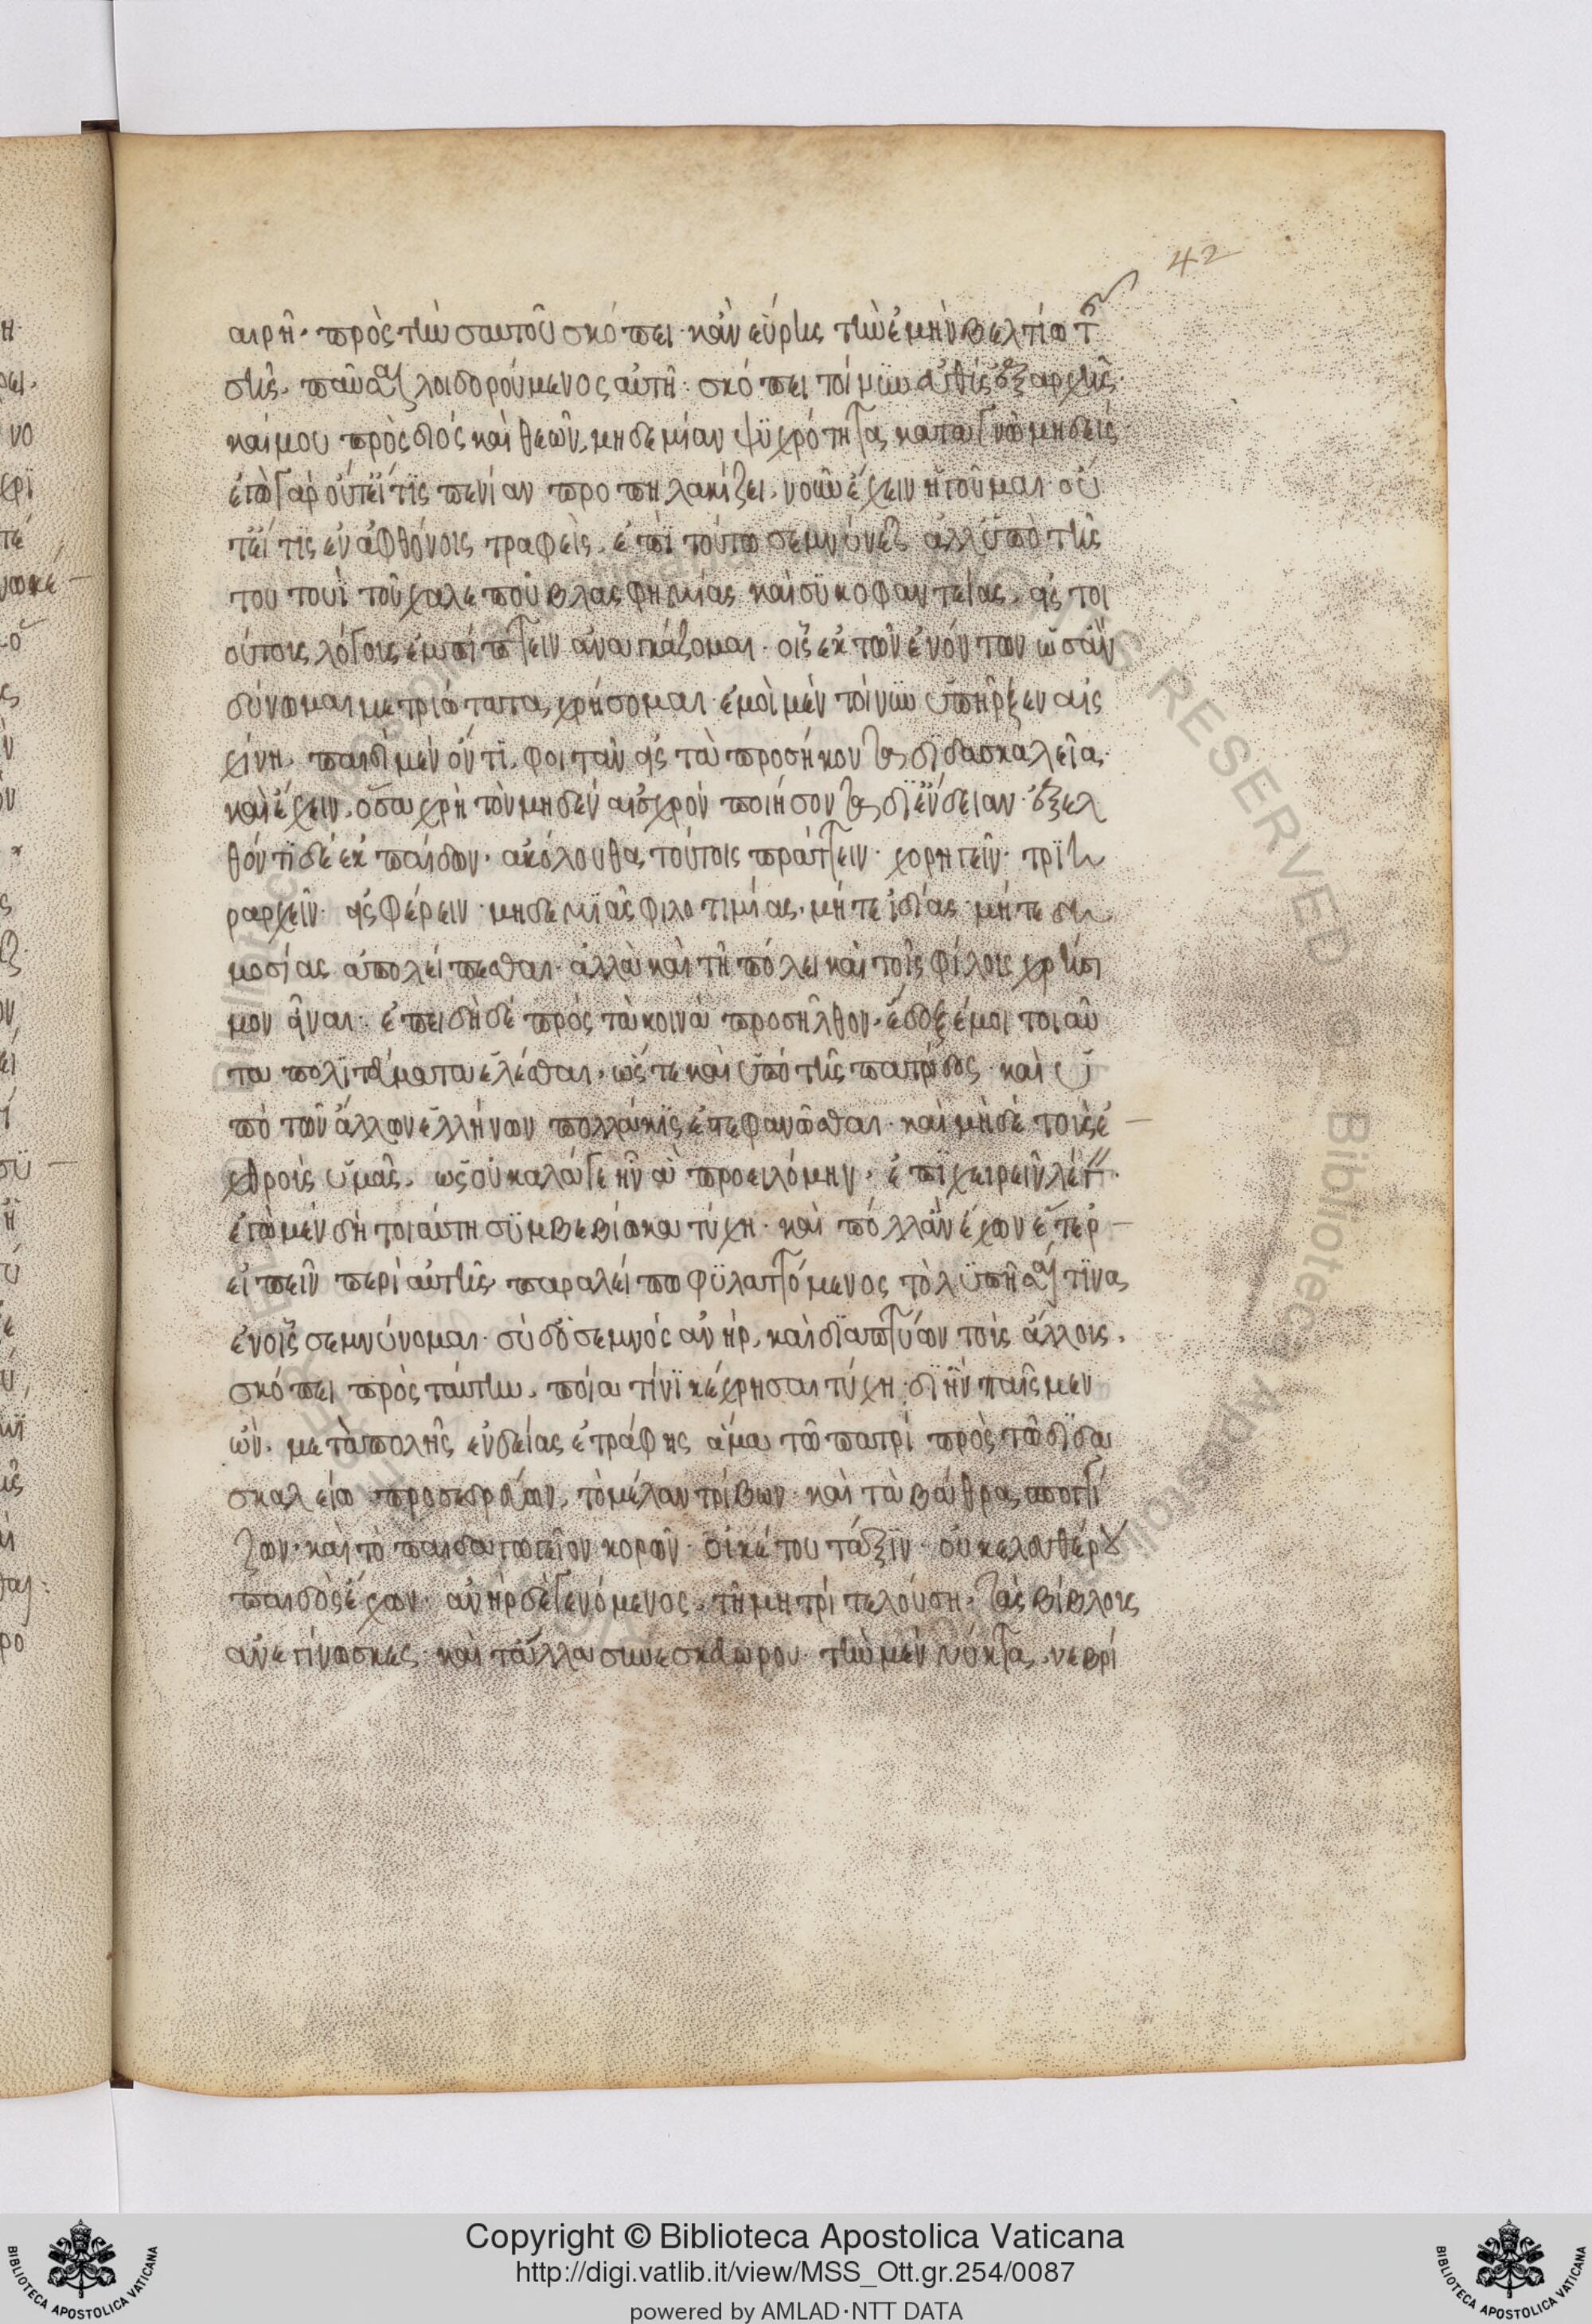 42
αιρῆ· πρὸς τὴν σαυτοῦ σκόπει· κἂν εὕρης τὴν ἐμὴν βελτίω τῆς
σῆς. παῦσαι λοιδορούμενος αὐτῆ· σκόπει τοίνυν εὐθὺς ἐξ ἀρχῆς·
καί μου πρὸς διός καὶ θεῶν. μηδεμίαν ψϋχρότητα καταγνῶ μηδείς·
ἐγὼ γὰρ οὔτ' εἴ τις πενίαν προπηλακίζει. νοῦν ἔχειν ἡγοῦμαι· οὔ
τ' εἴ τις ἐν ἀφθόνοις τραφεὶς. ἐπὶ τούτω σεμνύνεται ἀλλ' ὑπὸ τῆς
τουτουῒ τοῦ χαλεποῦ βλασφημίας καὶ σϋκοφαντείας. εἰς τοι
ούτους λόγους ἐμπίπτειν ἀναγκάζομαι· οἷς ἐκ τῶν ἐνόντων ὡς ἂν
δύνωμαι μετριώτατα χρήσομαι· ἐμοὶ μὲν τοίνυν ὑπῆρξεν αἰς
χίνη. παιδὶ μὲν ὄντι. φοιτᾶν εἰς τὰ προσήκοντα διδασκαλεῖα·
καὶ ἔχειν. ὅσα χρὴ τὸν μηδὲν αἰσχρὸν ποιήσοντα δι' ἔνδειαν· ἐξελ
θόντι δὲ ἐκ παίδων· ἀκόλουθα τούτοις πράττειν· χορηγεῖν· τριη
ραρχεῖν· εἰσφέρειν· μηδεμϊᾶς φιλοτιμίας. μήτε ἰδίας μήτε δη
μοσίας ἀπολείπεσθαι· ἀλλὰ καὶ τῆ πόλει καὶ τοῖς φίλοις χρήσι
μον εἶναι· ἐπειδὴ δὲ πρὸς τὰ κοινὰ προσῆλθον. ἔδοξέ μοι τοιαῦ
τα πολιτεύματα ἑλέσθαι. ὥστε καὶ ὑπὸ τῆς πατρίδος καὶ ὑ
πὸ τῶν ἄλλων ἑλλήνων πολλάκις ἐστεφανῶσθαι· καὶ μηδὲ τοὺς ἐ
χθροὺς ὑμᾶς. ὡς οὐ καλά γε ἦν ἃ προειλόμην. ἐπιχειρεῖν λέγειν·
ἐγὼ μὲν δὴ τοιαύτη σϋμβεβίωκα τύχη· καὶ πόλλ' ἂν ἔχων ἕτερ'
εἰπεῖν περὶ αὐτῆς παραλείπω φϋλαττόμενος τὸ λϋπῆσαι τινας
ἐν οἷς σεμνύνομαι· σὺ δ' ὁ σεμνὸς ἀνήρ. καὶ διαπτύων τοὺς ἄλλους.
σκόπει πρὸς ταύτην. ποία τινὶ κέχρησαι τύχη· δι' ἣν παῖς μὲν
ὢν. μετὰ πολλῆς ἐνδείας ἐτράφης ἅμα τῶ πατρὶ πρὸς τῶ διδα
σκαλείω προσεδρεύων. τὸ μέλαν τρίβων καὶ τὰ βάθρα σπογγί
ζων. καὶ τὸ παιδαγωγεῖον κορῶν· οἰκέτου τάξϊν· οὐκ ἐλευθέρου
παιδὸς ἔχων· ἀνὴρ δὲ γενόμενος. τῆ μητρὶ τελούση. τὰς βίβλους
ἀνεγίνωσκες· καὶ τἄλλα συνεσκευωροῦ· τὴν μὲν νύκτα. νεβρί
Copyright © Biblioteca Apostolica Vaticana
http://digi.vatlib.it/view/MSS_Ott.gr.254/0087
powered by AMLAD·NTT DATA